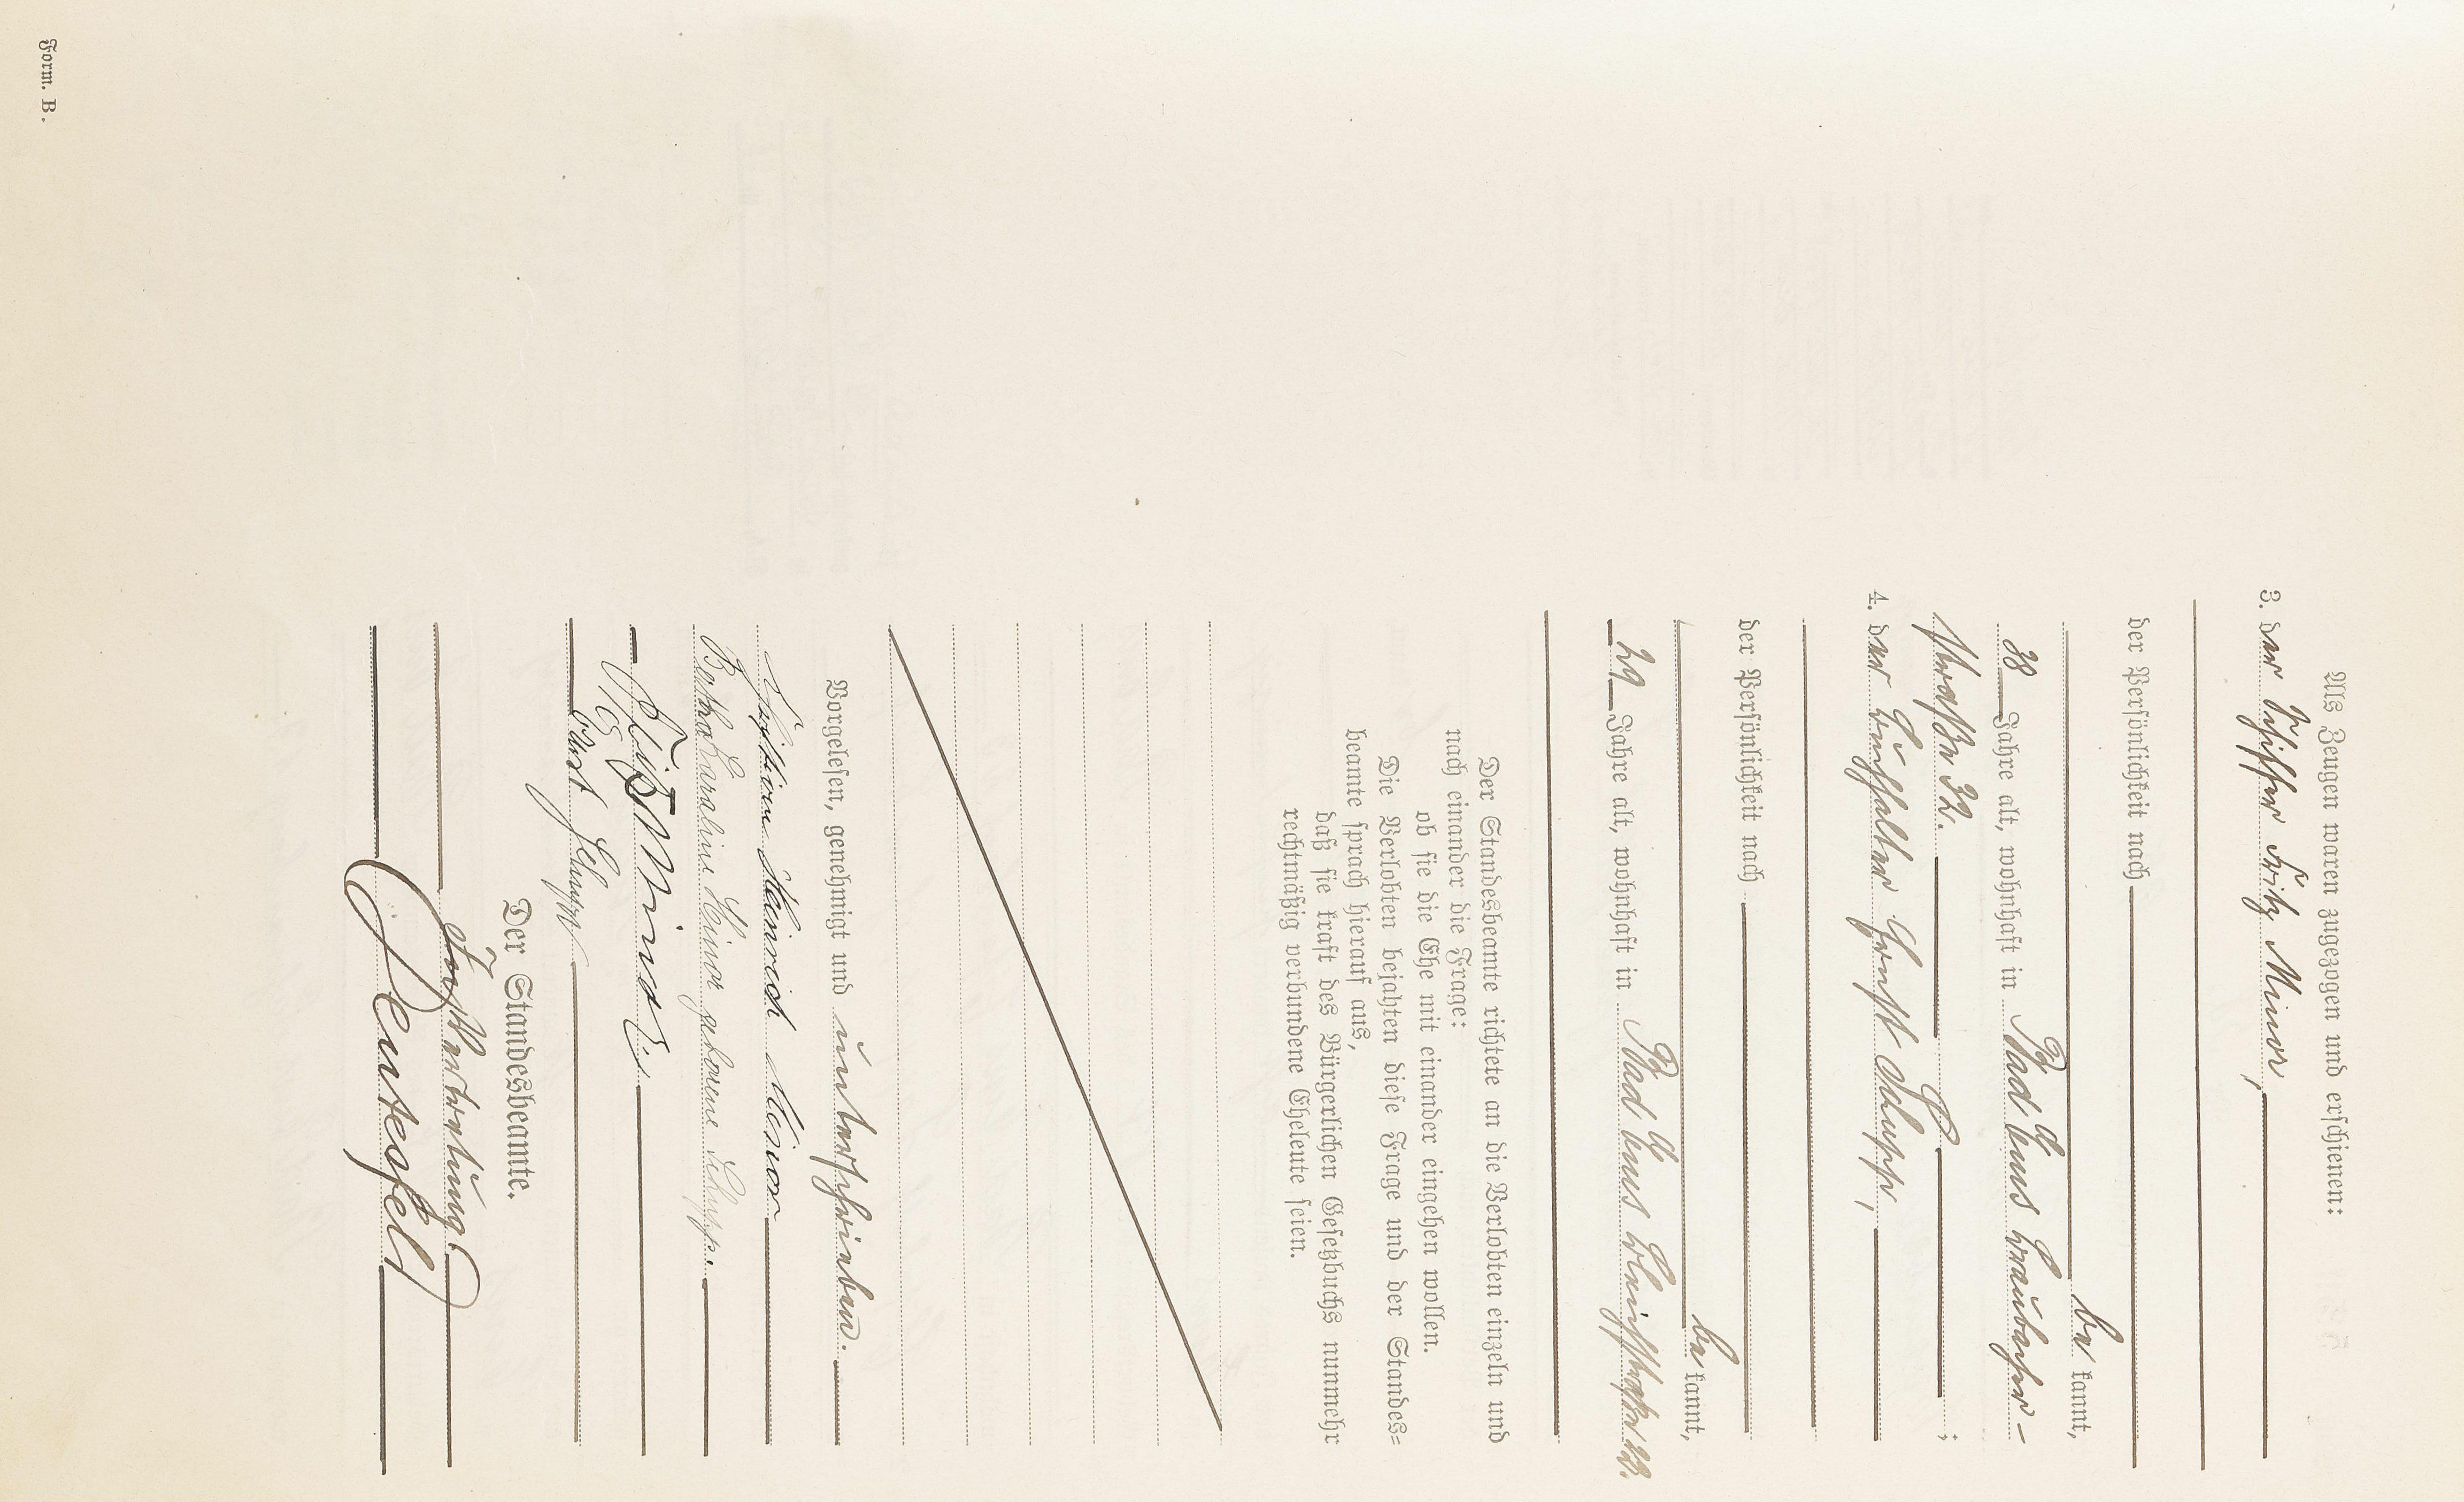 Als Zeugen waren zugezogen und erschienen:
3. der Schiffer Fritz Minor,
der Persönlichkeit nach
be kannt,
38 Jahre alt, wohnhaft in Bad Ems Braubacher-
straße 32. ;
4. der Buchhalter Ernst Schupp,
der Persönlichkeit nach
be kannt,
29 Jahre alt, wohnhaft in Bad Ems Bleichstraße 28.
Der Standesbeamte richtete an die Verlobten einzeln und
nach einander die Frage:
ob sie die Ehe mit einander eingehen wollen.
Die Verlobten bejahten diese Frage und der Standes=
beamte sprach hierauf aus,
daß sie kraft des Bürgerlichen Gesetzbuchs nunmehr
rechtmäßig verbundene Eheleute seien.
Vorgelesen, genehmigt und unterschrieben.
Heinrich Minor
Bertha Karoline Minor geborene Schupp.
Fritz Minor
Ernst Schupp
Der Standesbeamte.
In Vertretung: